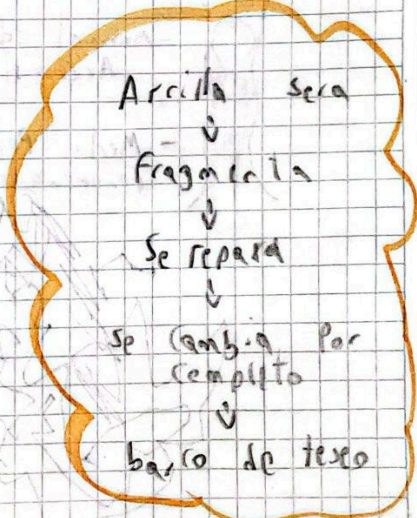 Arcilla seca
↓
fragmenta
↓
Se repara
↓
se cambia por
completo
↓
barco de teseo